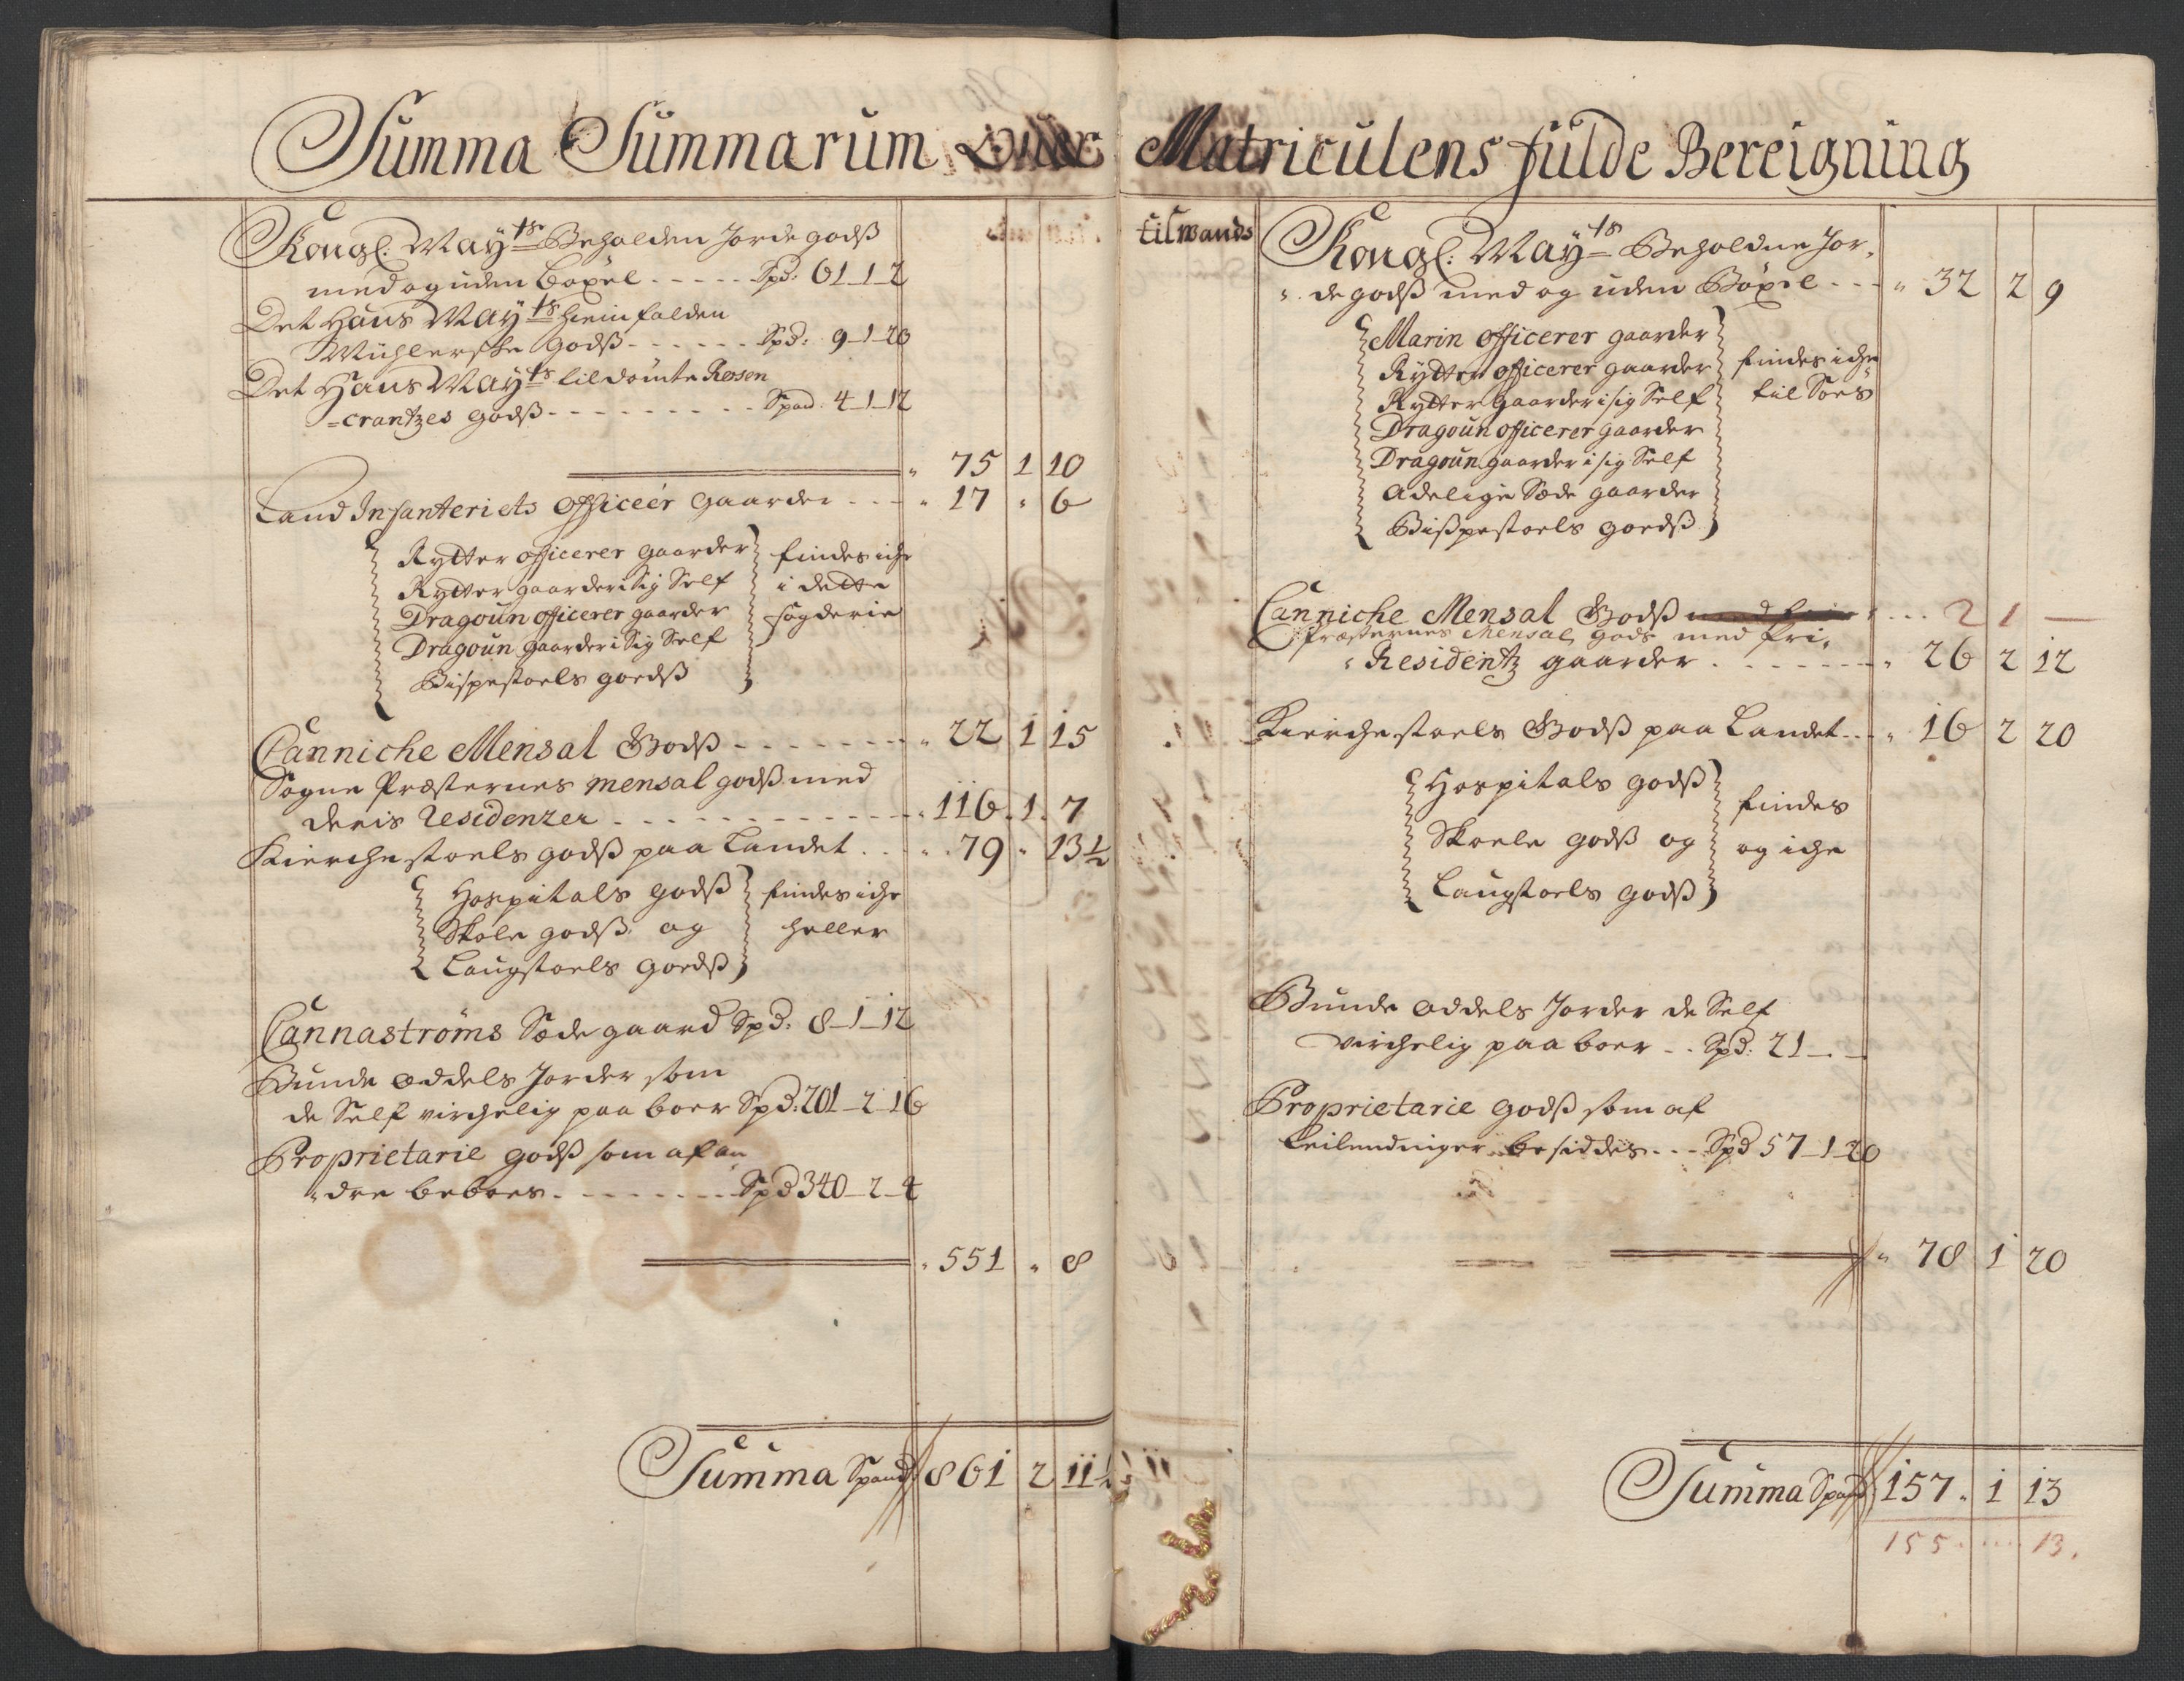 Summa Summarum Over Matriculens fulde Bereigning
Kongl. May.ts Beholden Jorde godß
med og uden böxel - - - - - Spd: 61 - 1 - 2
Det Hans May.ts hiemfalden
Mühlerske godß - - - - - - Spd: 9 - 1 - 20
Det Hans May.ts tildömte Rosen
=crantzes godß - - - - - - - - - Spand: 4 - 1 - 12
" 75 | 1 | 10
Land Infanteriets Officeér gaarder - - - " 17 | " | 6
Rytter officerer gaarder
Rytter gaarder i Sig Self
Dragoun officerer gaarder
Dragoun gaarder i Sig Self
Bispestoels goedß
findes iche
i dette
fogderie
Canniche Mensal Godß - - - - - - - - " 22 | 1 | 15
Sogne Præsternes mensal godß med
deris Residenzer - - - - - - - - - - - - " 116 . 1 . 7
Kierchestoels godß paa Landet . . . " 79 " 13½
Hospitals godß
Skole godß og
Laugstoels goedß
findes iche
heller
Cannaströms Sæde gaard Spd: 8 - 1 - 12
Bunde oddels Jorder som
de Self virchelig paa boer Spd: 201 - 2 - 16
Proprietarie godß som af an
"dre beboes - - - - - - - - Spd 340 - 2 - 4
" 551 " 8
Summa Spand 861 | 2 | 11½
til wands
Kongl: May.ts Beholdne Jor,
". de godß med og uden Böxel - - - " 32 | 2 | 9
Marin officerer gaarder
Rytter officerer gaarder
Rytter gaarder i sig Self
Dragoun officerer gaarder
Dragoun gaarder i sig Self
Adelige Sæde gaarder
Bißpestoels goedß
findes iche
til Söes
Canniche Mensal Godß . . . 2 1 —
Præsternes Mensal gods med fri,
" Residentz gaarder . - - - - - - " 26 | 2 | 12
Kierchestoels Godß paa Landet . . - " 16 | 2 | 20
Hospitals godß
Skoele godß og
Laugstoels godß
findes
og iche
Bunde oddels Jorder de Self
virchelig paa boer - . Spd: 21 - . -
Proprietarie godß som af
Leilendninger besiddes . . - Spd 57 - 1 - 20
" 78 | 1 | 20
Summa Spand 157 " 1 | 13
155 . . . . 13 .